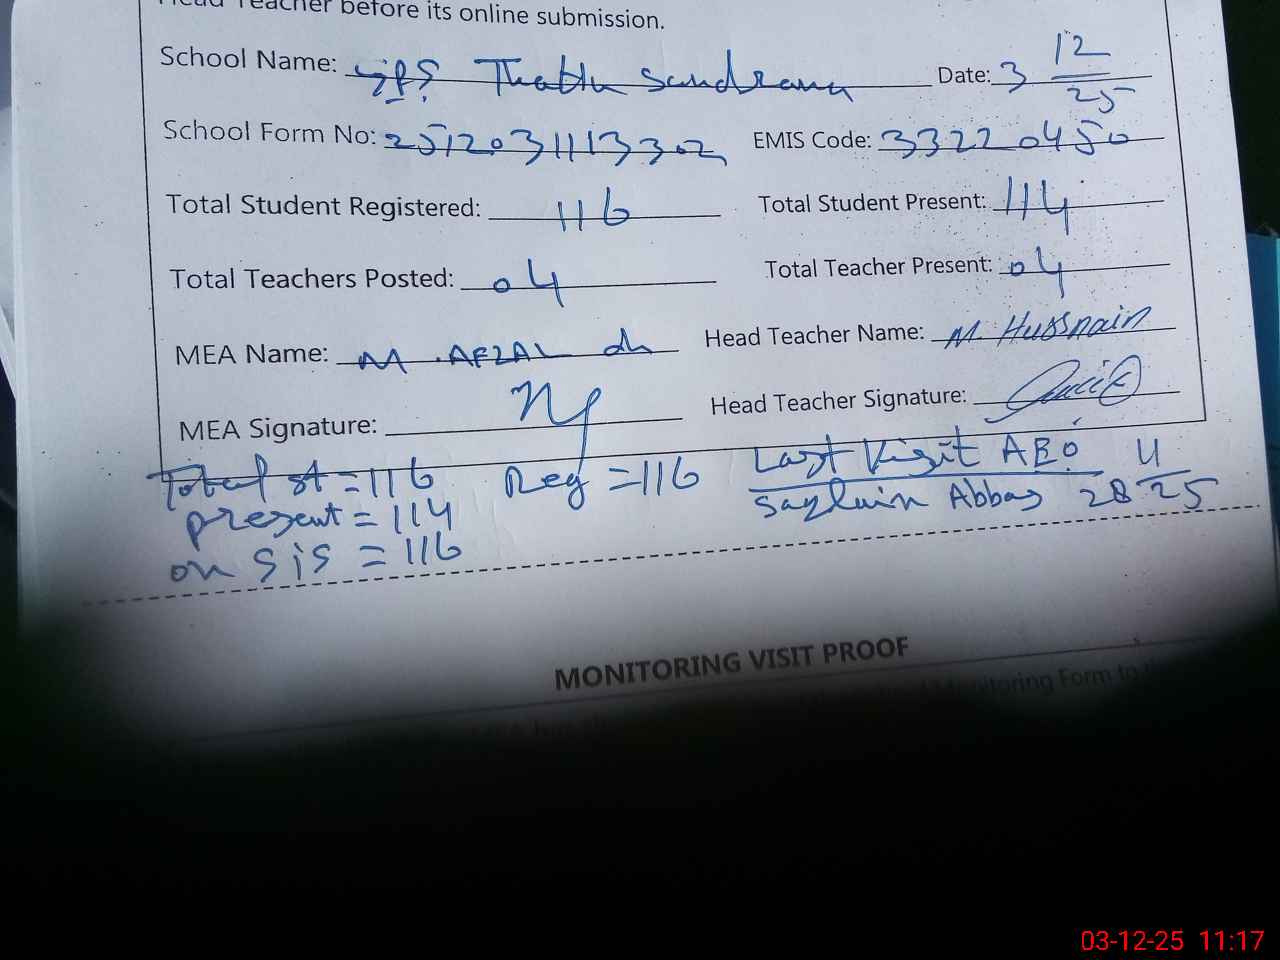 Head Teacher before its online submission.
School Name: GPS Thatta Sandrana Date: 3 12/25
School Form No: 2512031113302 EMIS Code: 33220450
Total Student Registered: 116 Total Student Present: 114
Total Teachers Posted: 04 Total Teacher Present: 04
MEA Name: M. AFZAL Head Teacher Name: M. Hussnain
MEA Signature: Head Teacher Signature:
Total st = 116 Reg = 116 Last Visit AEO
present = 114 Saqlain Abbas 28 11/25
on SiS = 116
MONITORING VISIT PROOF
Monitoring Form to
03-12-25 11:17